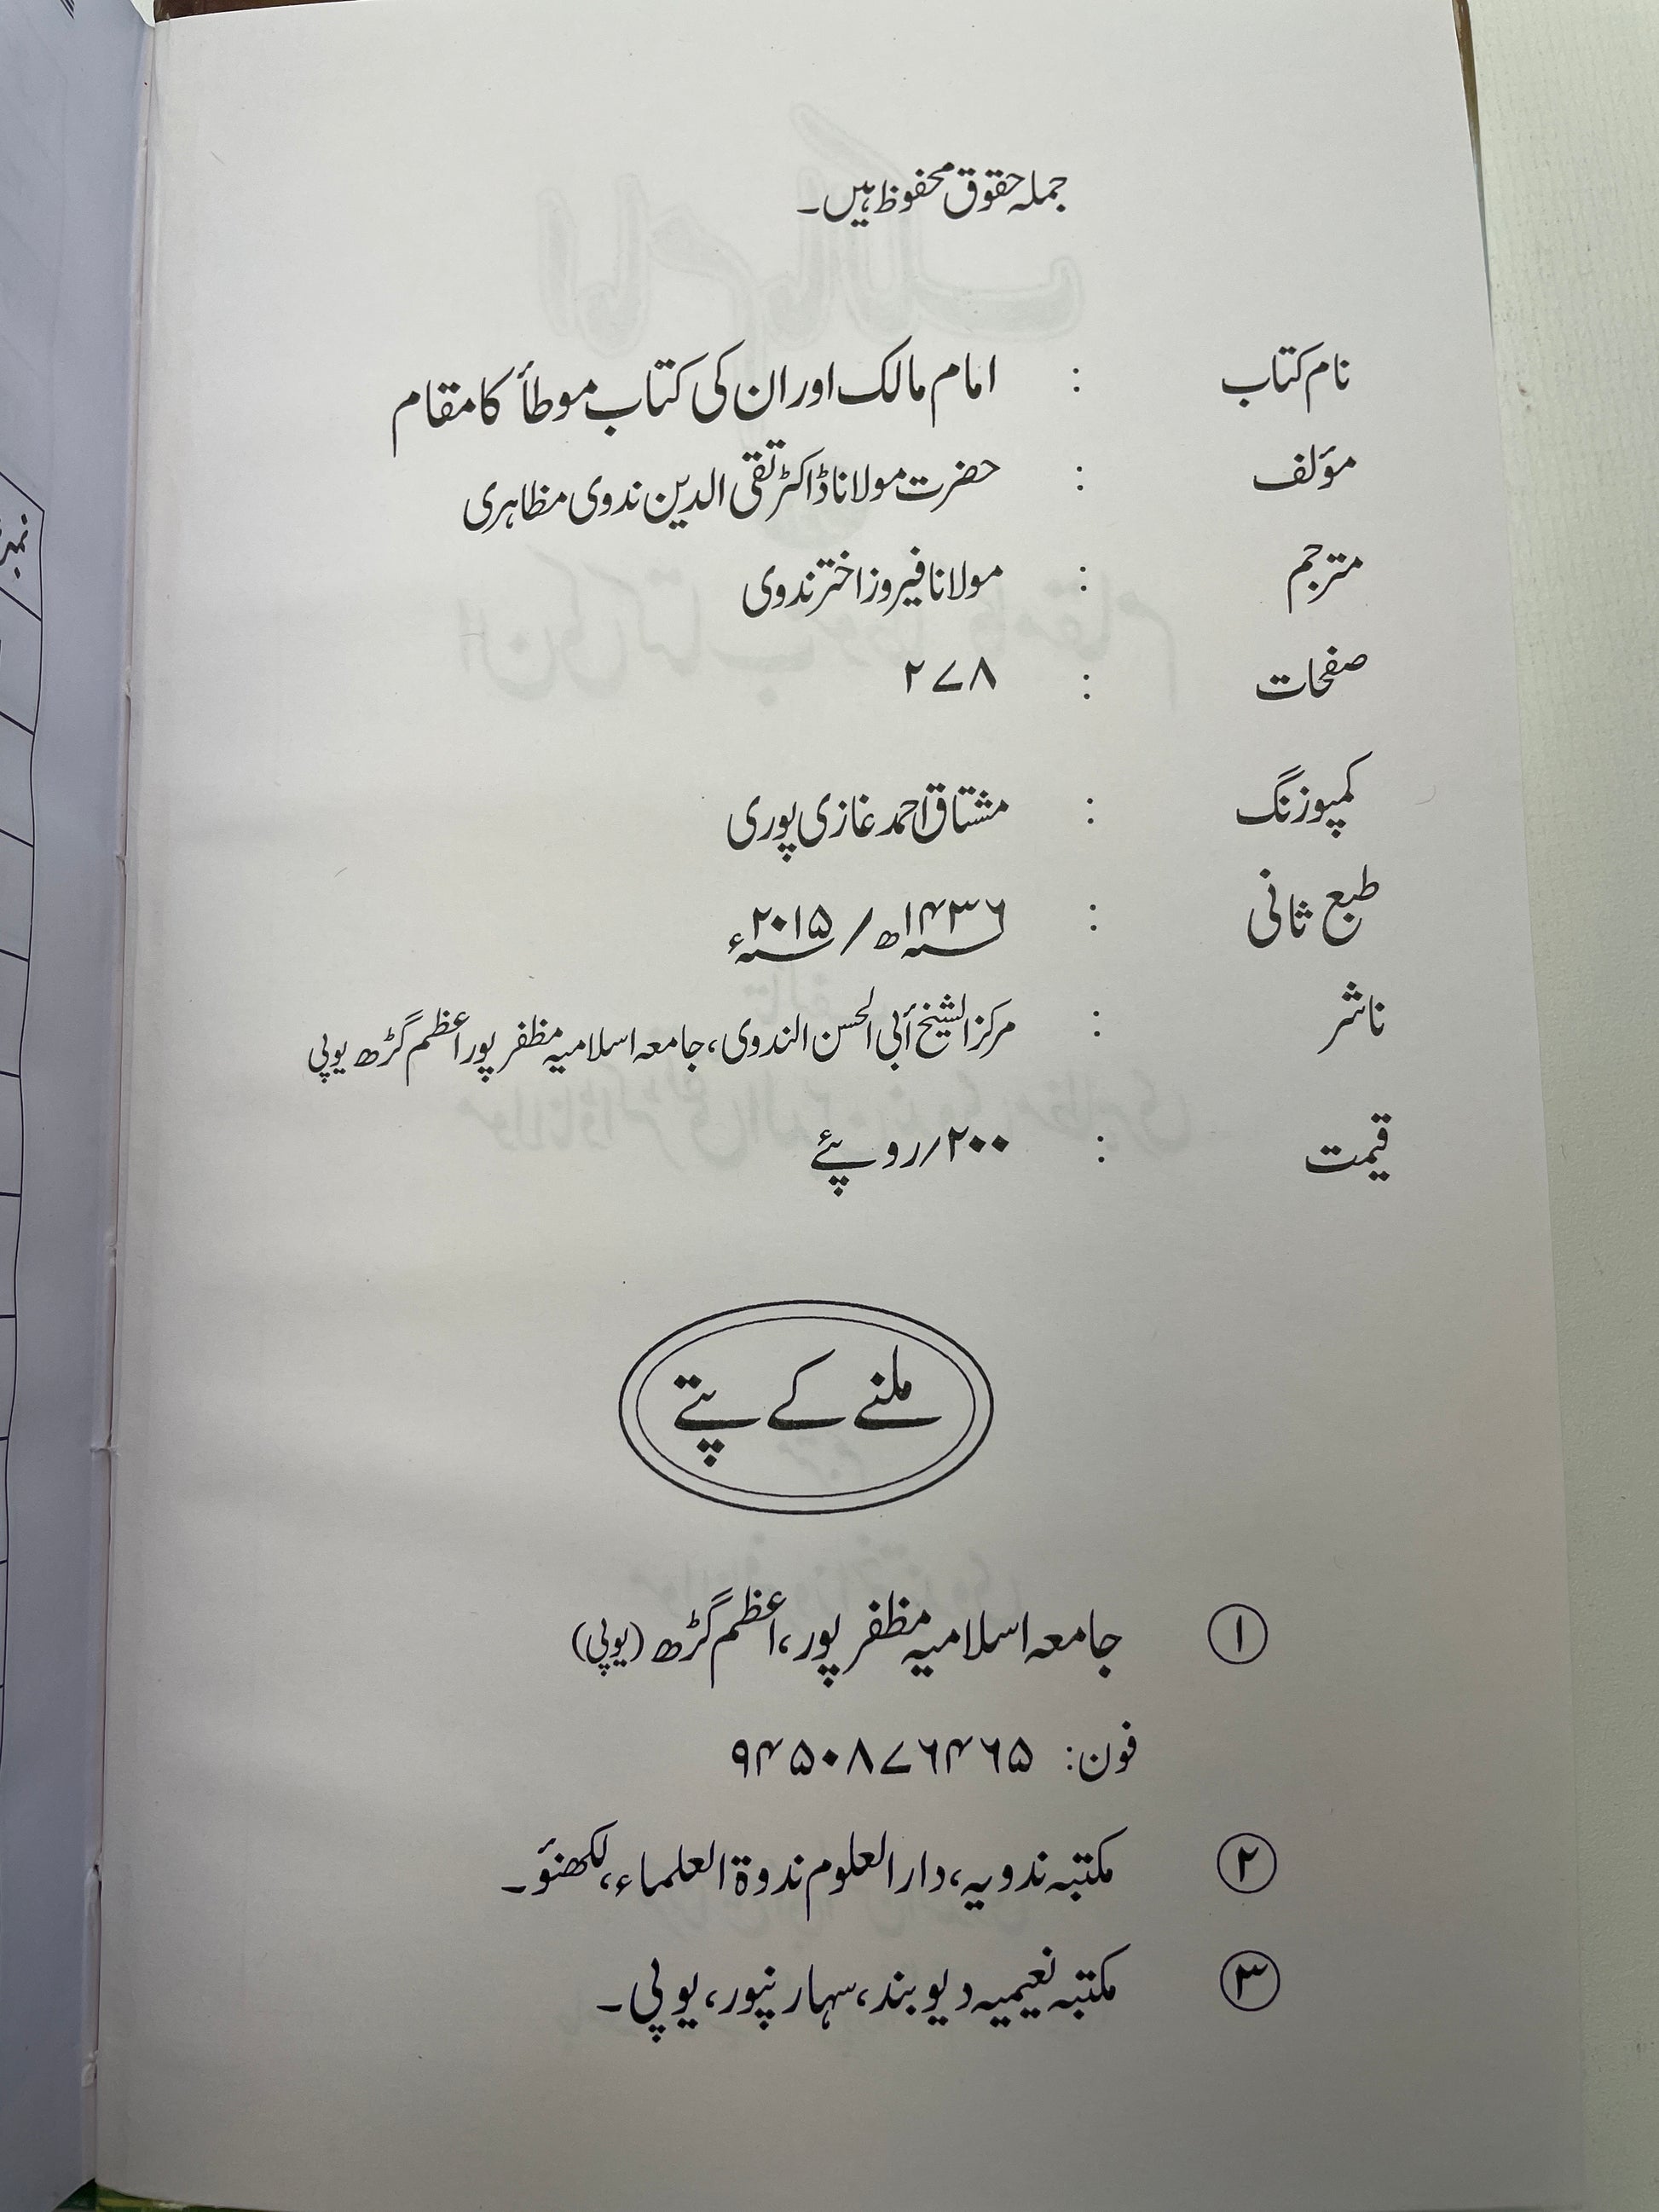 جملہ حقوق محفوظ ہیں۔
نام کتاب : امام مالک اور ان کی کتاب موطأ کا مقام
مؤلف : حضرت مولانا ڈاکٹر تقی الدین ندوی مظاہری
مترجم : مولانا فیروز اختر ندوی
صفحات : ۲۷۸
کمپوزنگ : مشتاق احمد غازی پوری
طبع ثانی : ۱۴۳۶ھ / ۲۰۱۵ء
ناشر : مرکز الشیخ أبی الحسن الندوی، جامعہ اسلامیہ مظفر پور اعظم گڑھ یوپی
قیمت : ۲۰۰/روپئے
ملنے کے پتے
۱ جامعہ اسلامیہ مظفر پور، اعظم گڑھ (یوپی)
فون: ۹۴۵۰۸۷۶۴۶۵
۲ مکتبہ ندویہ، دار العلوم ندوۃ العلماء، لکھنؤ۔
۳ مکتبہ نعیمیہ دیوبند، سہارنپور، یوپی۔